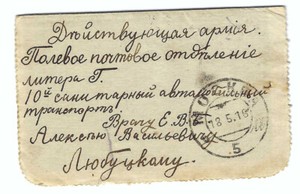 Дѣйствующая армія.
Полевое почтовое отдѣленіе
литера Г.
10й санитарный автомобильный
транспортъ.
Врачу Е.В.
Алексѣю Васильевичу
Любуцкому.
18.5.16
5